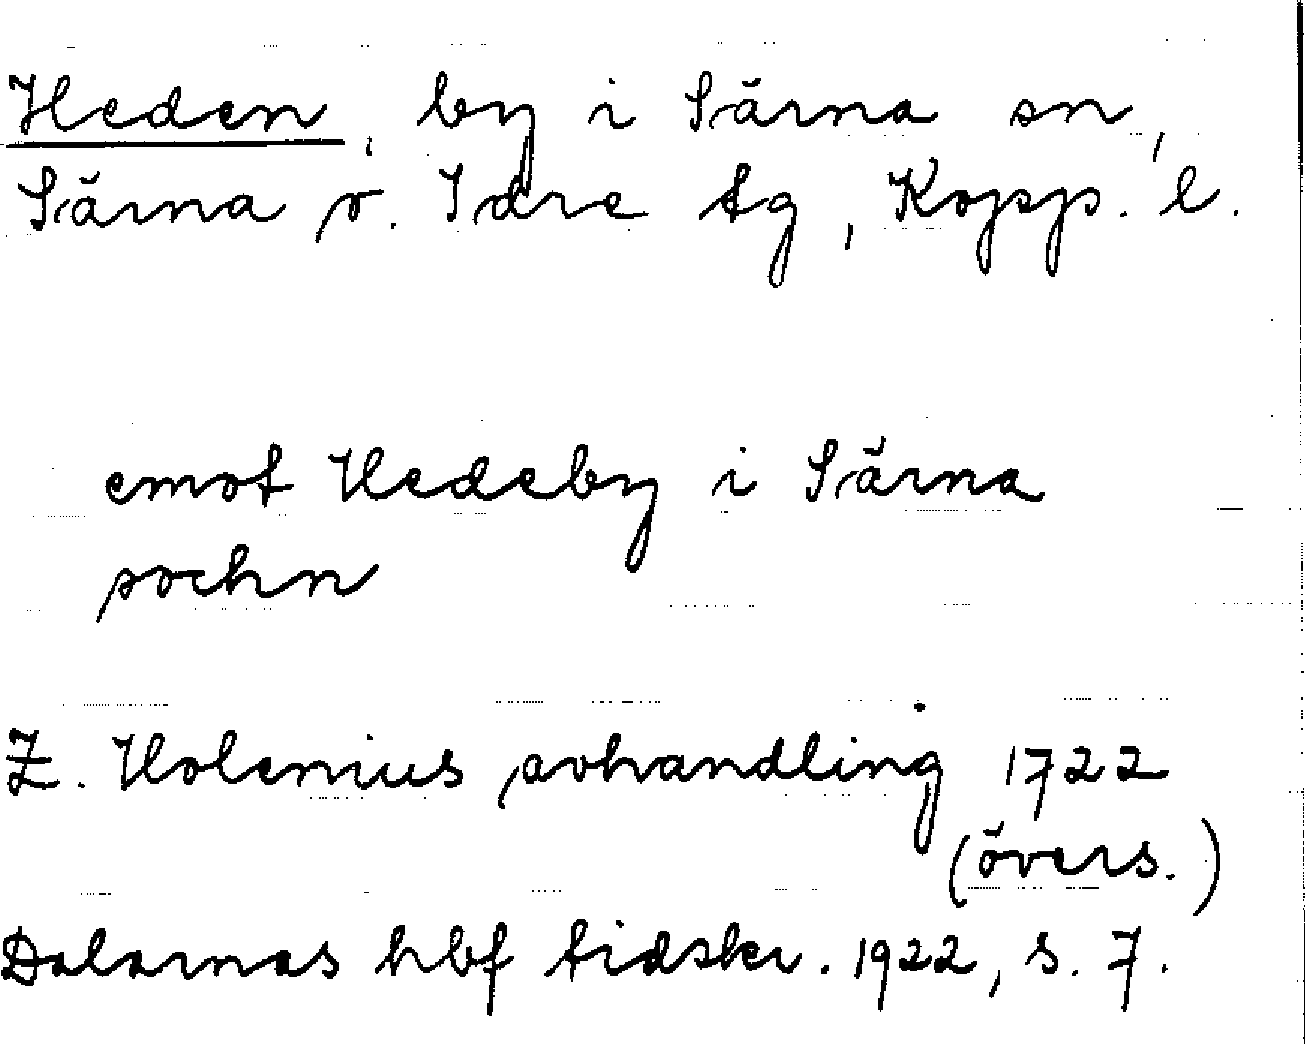 Heden, by i Särna sn,
Särna o. Idre tg, Kopp. l.
emot Hedeby i Särna
sochn
Z. Holenius avhandling 1722
(övers.)
Dalarnas hbf tidskr. 1922, s. 7.